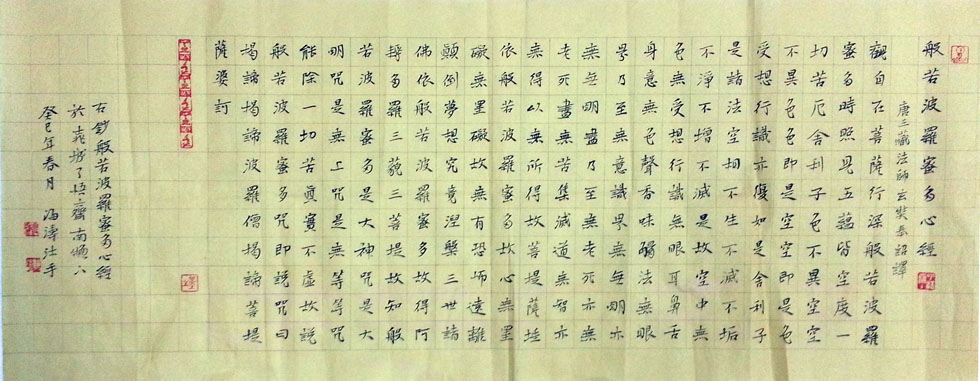 般若波羅蜜多心經
唐三藏法師玄奘奉詔譯
觀自在菩薩行深般若波羅
蜜多時照見五蘊皆空度一
切苦厄舍利子色不異空空
不異色色即是空空即是色
受想行識亦復如是舍利子
是諸法空相不生不滅不垢
不淨不增不減是故空中無
色無受想行識無眼耳鼻舌
身意無色聲香味觸法無眼
界乃至無意識界無無明亦
無無明盡乃至無老死亦無
老死盡無苦集滅道無智亦
無得以無所得故菩提薩埵
依般若波羅蜜多故心無罣
礙無罣礙故無有恐怖遠離
顛倒夢想究竟涅槃三世諸
佛依般若波羅蜜多故得阿
耨多羅三藐三菩提故知般
若波羅蜜多是大神咒是大
明咒是無上咒是無等等咒
能除一切苦真實不虛故說
般若波羅蜜多咒即說咒曰
揭諦揭諦波羅僧揭諦菩提
薩婆訶
右鈔般若波羅蜜多心經
於了悟齋南
癸巳年春月